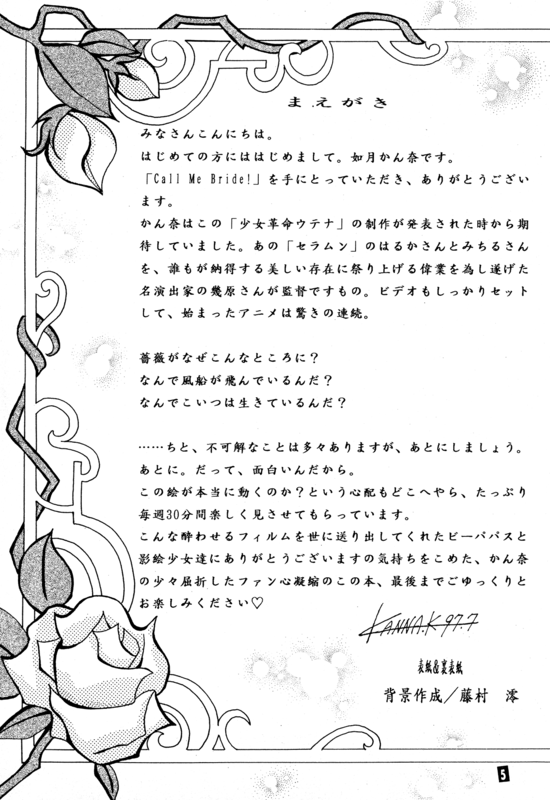 まえがき
みなさんこんにちは。
はじめての方にははじめまして。如月かん奈です。
「Call Me Bride!」を手にとっていただき、ありがとうござい
ます。
かん奈はこの「少女革命ウテナ」の制作が発表された時から期
待していました。あの「セラムン」のはるかさんとみちるさん
を、誰もが納得する美しい存在に祭り上げる偉業を為し遂げた
名演出家の幾原さんが監督ですもの。ビデオもしっかりセット
して、始まったアニメは驚きの連続。
薔薇がなぜこんなところに？
なんで風船が飛んでいるんだ？
なんでこいつは生きているんだ？
……ちと、不可解なことは多々ありますが、あとにしましょう。
あとに。だって、面白いんだから。
この絵が本当に動くのか？という心配もどこへやら、たっぷり
毎週30分間楽しく見させてもらっています。
こんな酔わせるフィルムを世に送り出してくれたビーパパスと
影絵少女達にありがとうございますの気持ちをこめた、かん奈
の少々屈折したファン心凝縮のこの本、最後までごゆっくりと
お楽しみください♡
KANNA.K 97.7
表紙&裏表紙
背景作成／藤村 澪
5